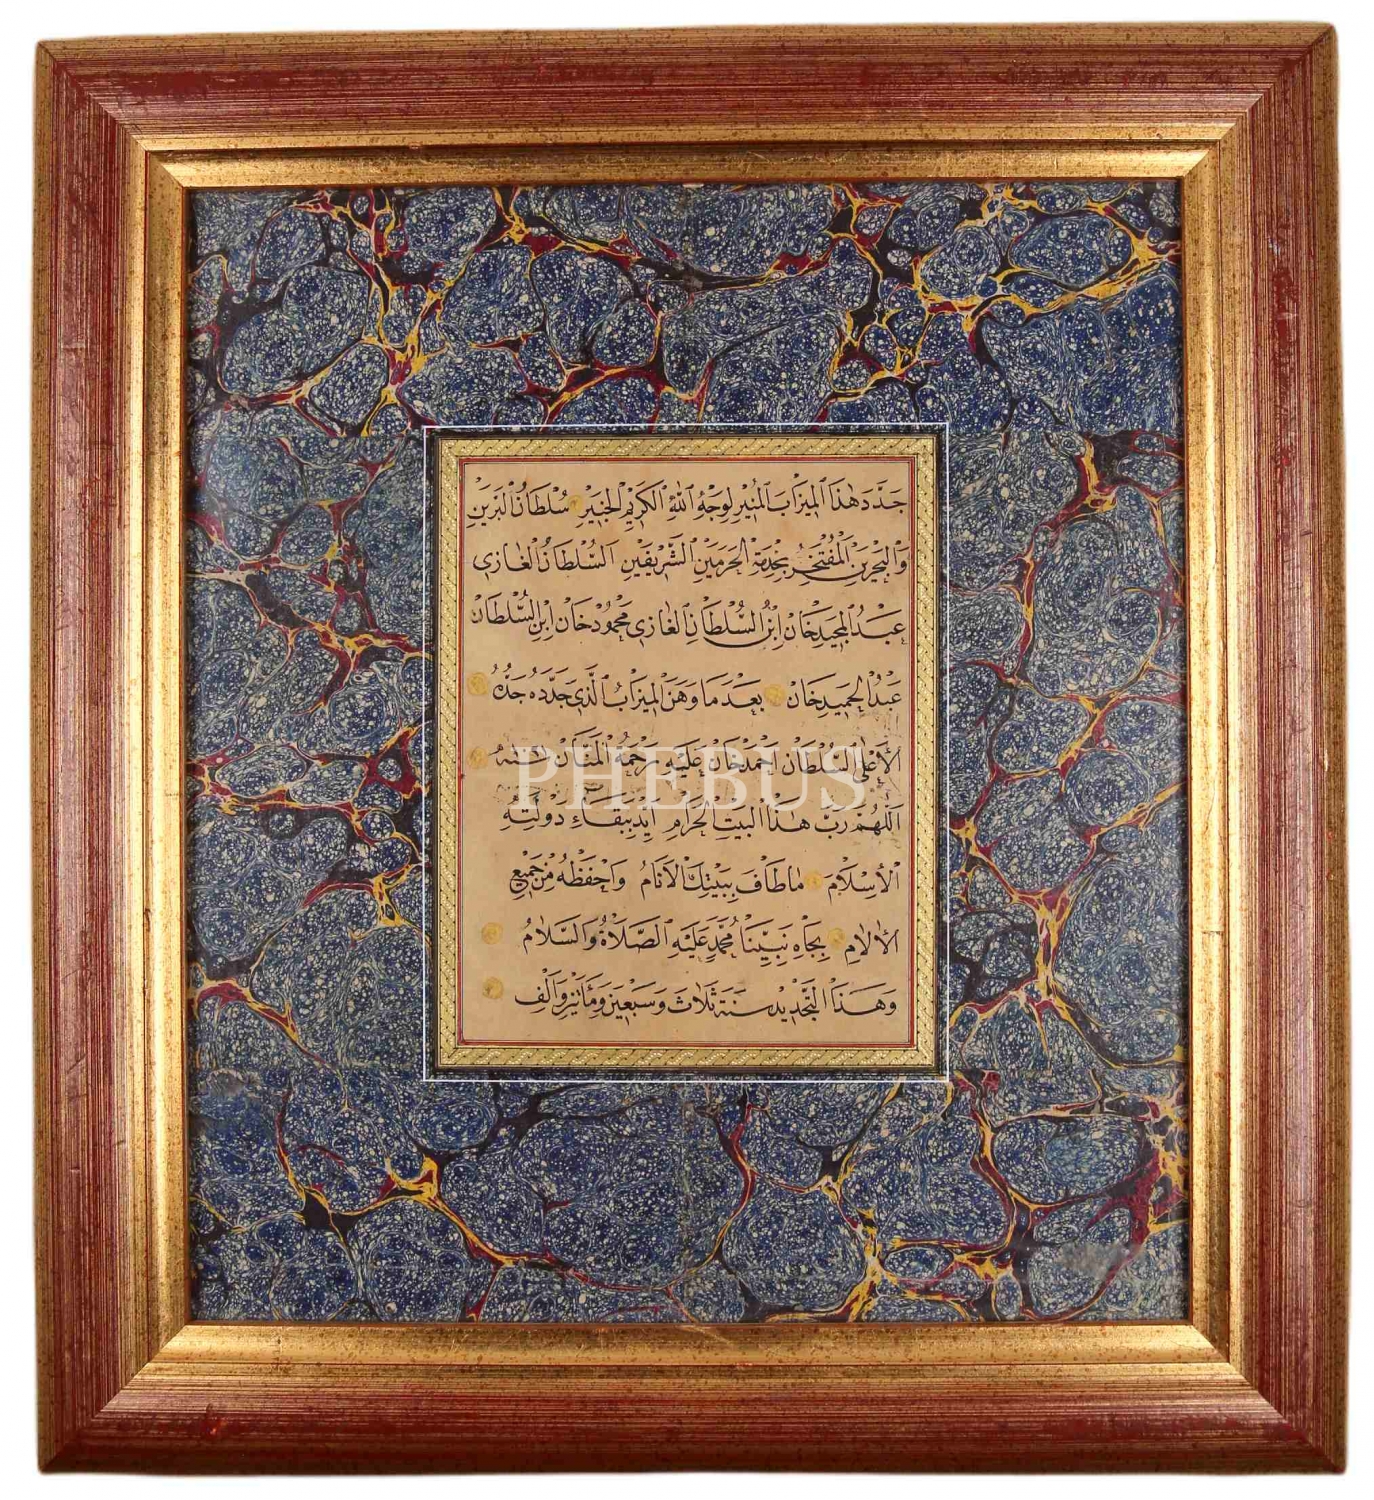 جَدَّدَ هٰذَا الْمِيزَابَ الْمُنِيرَ لِوَجْهِ اللّٰهِ الْكَرِيمِ الْخَبِيرِ سُلْطَانُ الْبَرَّيْنِ
وَالْبَحْرَيْنِ الْمُفْتَخِرُ بِخِدْمَةِ الْحَرَمَيْنِ الشَّرِيفَيْنِ السُّلْطَانُ الْغَازِي
عَبْدُ الْمَجِيدِ خَان اِبْنُ السُّلْطَانِ الْغَازِي مَحْمُودْ خَان اِبْنِ السُّلْطَان
عَبْدُ الْحَمِيدِ خَان بَعْدَ مَا وَهَنَ الْمِيزَابُ الَّذِي جَدَّدَهُ جَدُّهُ
الْأَعْلَى السُّلْطَان اَحْمَدْ خَان عَلَيْهِ رَحْمَةُ الْمَنَّان سَنَةُ
PHEBUS
اَللّٰهُمَّ رَبَّ هٰذَا الْبَيْتِ الْحَرَامِ اَيِّدْ بِبَقَاءِ دَوْلَتِهِ
الْأِسْلَامَ مَا طَافَ بِبَيْتِكَ الْاَنَامُ وَاحْفَظْهُ مِنْ جَمِيعِ
الْاٰلَامِ بِجَاهِ نَبِيِّنَا مُحَمَّدٍ عَلَيْهِ الصَّلَاةُ وَالسَّلَامُ
وَهَذَا التَّجْدِيدُ سَنَةَ ثَلَاثَ وَسَبْعِينَ وَمِأَتَيْنِ وَاَلْفِ